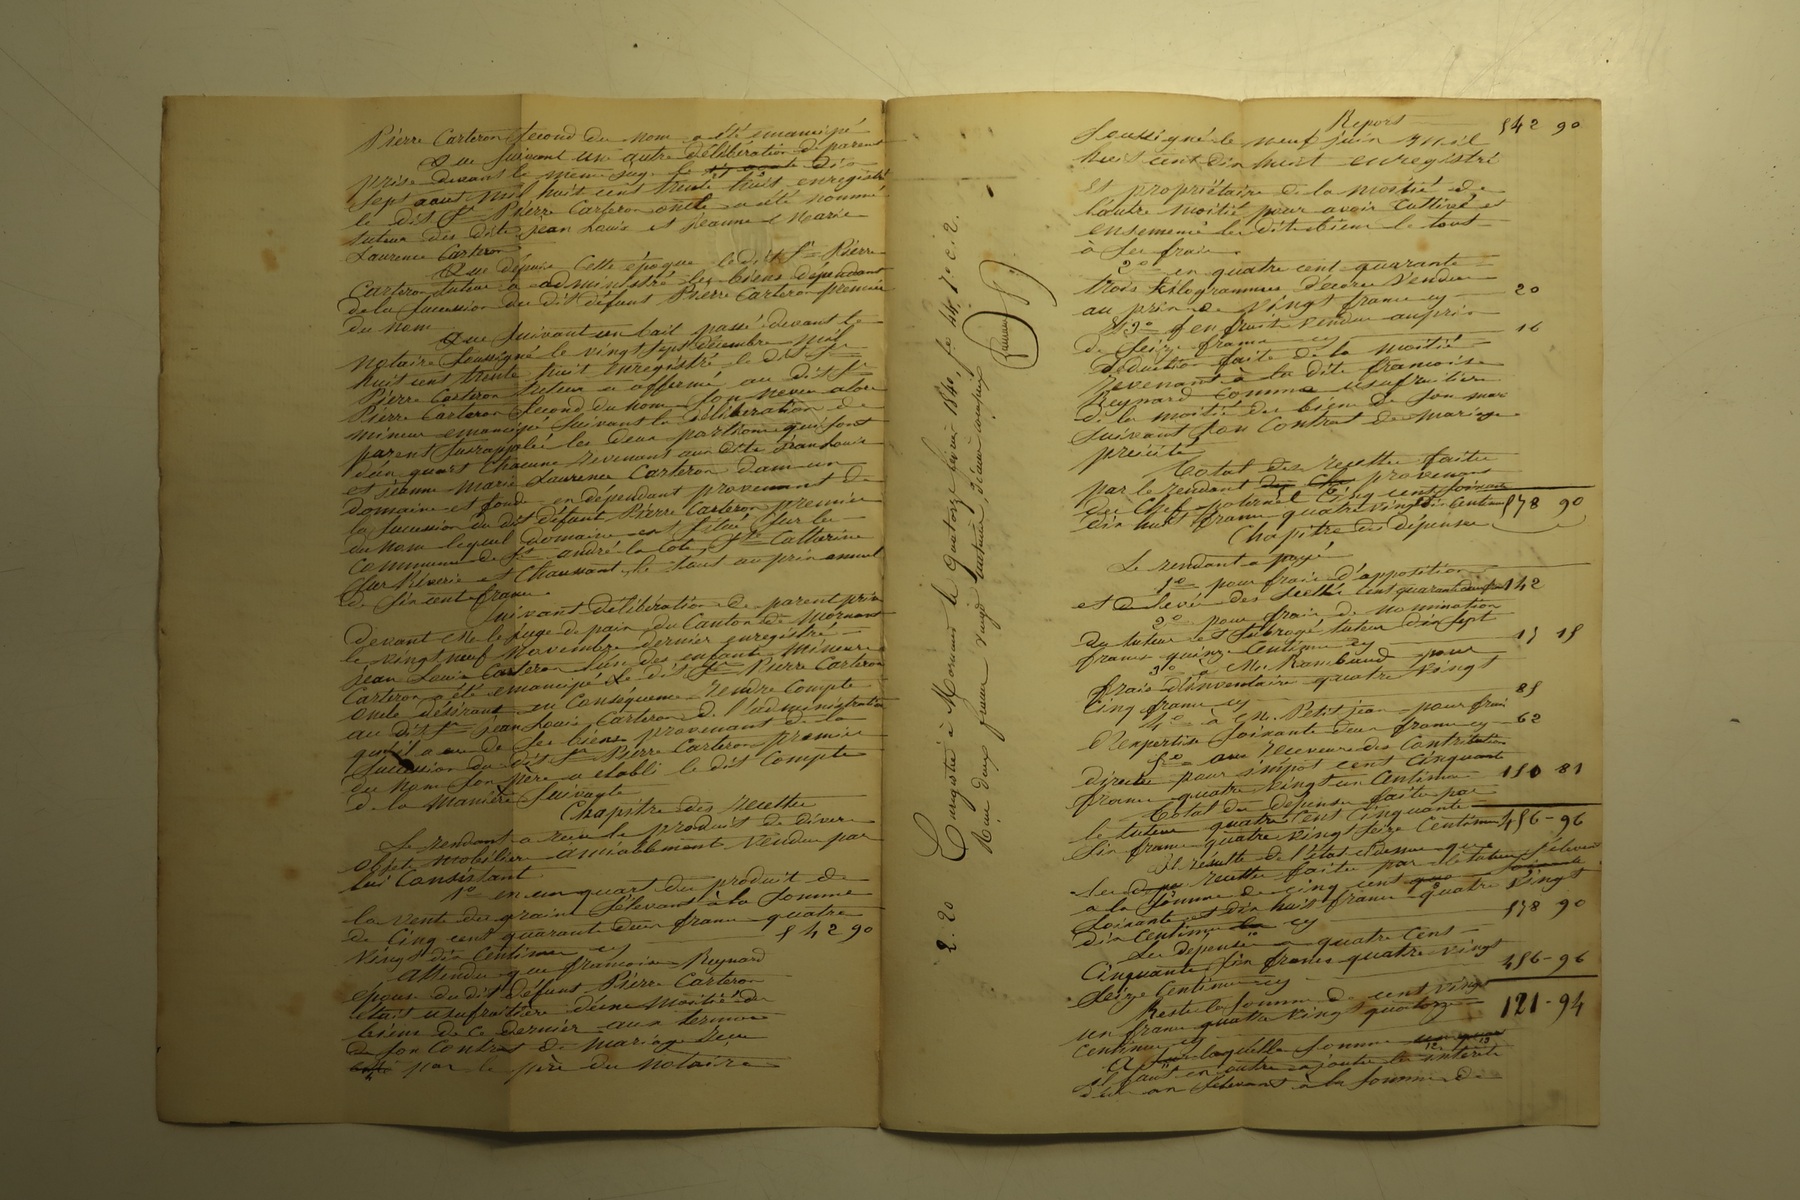 Pierre Carteron second du nom a été émancipé
Que suivant une autre délibération de parents
prise devant le même juge le dix
sept aout mil huit cent trente huit enregistré
le dit Sr Pierre Carteron oncle a été nommé
tuteur des dits jean Louis et jeanne Marie
Laurence Carteron
Que depuis cette époque le dit Sr Pierre
Carteron tuteur a administré les biens dépendant
de la succession du dit défunt Pierre Carteron premier
du nom
Que suivant un bail passé devant le
notaire soussigné le vingt sept décembre mil
huit cent trente huit enregistré le dit Sr
Pierre Carteron tuteur a affermé au dit Sr
Pierre Carteron second du nom son neveu alors
mineur emancipé suivant la délibération de
parent susrappelée les deux portions qui sont
d'un quart chacune revenant aux dits jean Louis
et jeanne Marie Laurence Carteron dans un
domaine et fonds en dépendant provenant de
la succession du dit défunt Pierre Carteron premier
du nom lequel domaine est situé sur les
communes de St andré la cote, Ste Catherine
sur Riverie et Chaussant, le tout au prix annuel
de six cent francs
Suivant délibération de parent prise
devant Mr le juge de paix du Canton de Mornant
le vingt neuf novembre dernier enregistré
jean Louis Carteron l'un des enfants mineurs
Carteron a été emancipé le dit Sr Pierre Carteron
oncle désirant en conséquence rendre compte
au dit Sr jean Louis Carteron de l'administration
qu'il a eu de ses biens provenant de la
succession du dit Sr Pierre Carteron premier
du nom son père a établi le dit compte
de la manière suivante
Chapitre des recettes
Le rendant a recu le produit de divers
objets mobiliers amiablement vendus par
lui consistant
1º en un quart du produit de
la vente des grains s'élevant à la somme
de cinq cent quarante deux francs quatre
vingt dix centimes cy 542 90
Attendu que francoise Reynard
épouse du dit défunt Pierre Carteron
était usufruitière d'une moitié des
biens de ce dernier aux termes
de son contrat de mariage recu
par le père du notaire
2.20 Enregistré à Mornant le quatorze février 1840, fo 44, Ro c. 2.
Recu deux francs vingt centimes décime compris
Report 542 90
Soussigné le neuf juin mil
huit cent dix huit enregistré
Est propriétaire de la moitié de
l'autre moitié pour avoir cultivé et
ensemencé les dits biens le tout
à ses frais
2º en quatre cent quarante
trois kilogrammes d'écorce vendus
au prix de vingt francs cy 20
3º en fruits vendus au prix
de seize francs cy 16
déduction faite de la moitié
revenant à la dite francoise
Reynard comme usufruitière
de la moitié des biens de son mari
suivant son contrat de mariage
précité
Total des recettes faites
par le rendant provenant
du chef paternel cinq cent soixante
dix huit francs quatre vingt dix centimes 578 90
Chapitre des dépenses
Le rendant a payé
1º pour frais d'apposition
et de levée des scellés cent quarante deux francs 142
2º pour frais de nomination
du tuteur et subrogé tuteur dix sept
francs quinze centimes cy 17 15
3º à Me Rambaud pour
frais d'inventaire quatre vingt
cinq francs cy 85
4º à Mr Petitjean pour frais
d'expertise soixante deux francs cy 62
5º au receveur des contributions
directes pour l'impot cent cinquante
francs quatre vingt un centimes 150 81
Total des dépenses faites par
le tuteur quatre cent cinquante
six francs quatre vingt seize centimes 456-96
Il résulte de l'état ci dessus que
les recettes faites par le tuteur s'élèvent
a la somme de cinq cent
soixante et dix huit francs quatre vingt
dix centimes cy 578 90
Les dépenses a quatre cent
cinquante six francs quatre vingt
seize centimes cy 456-96
Reste la somme de cent vingt
un francs quatre vingt quatorze
centimes cy 121-94
A laquelle somme
il faut en outre ajouter les intérêts
d'un an s'élevant à la somme de